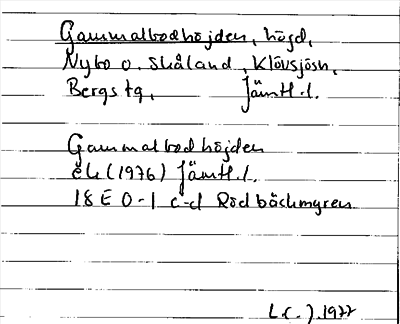 Gammalbodhöjden, höjd,
Nybo o. Skåland, Klövsjösn,
Bergs tg, Jämtl.l.
Gammalbodhöjden
ek (1976) Jämtl.l.
18E 0-1 c-d Rödbäckmyren
L.C.J. 1977